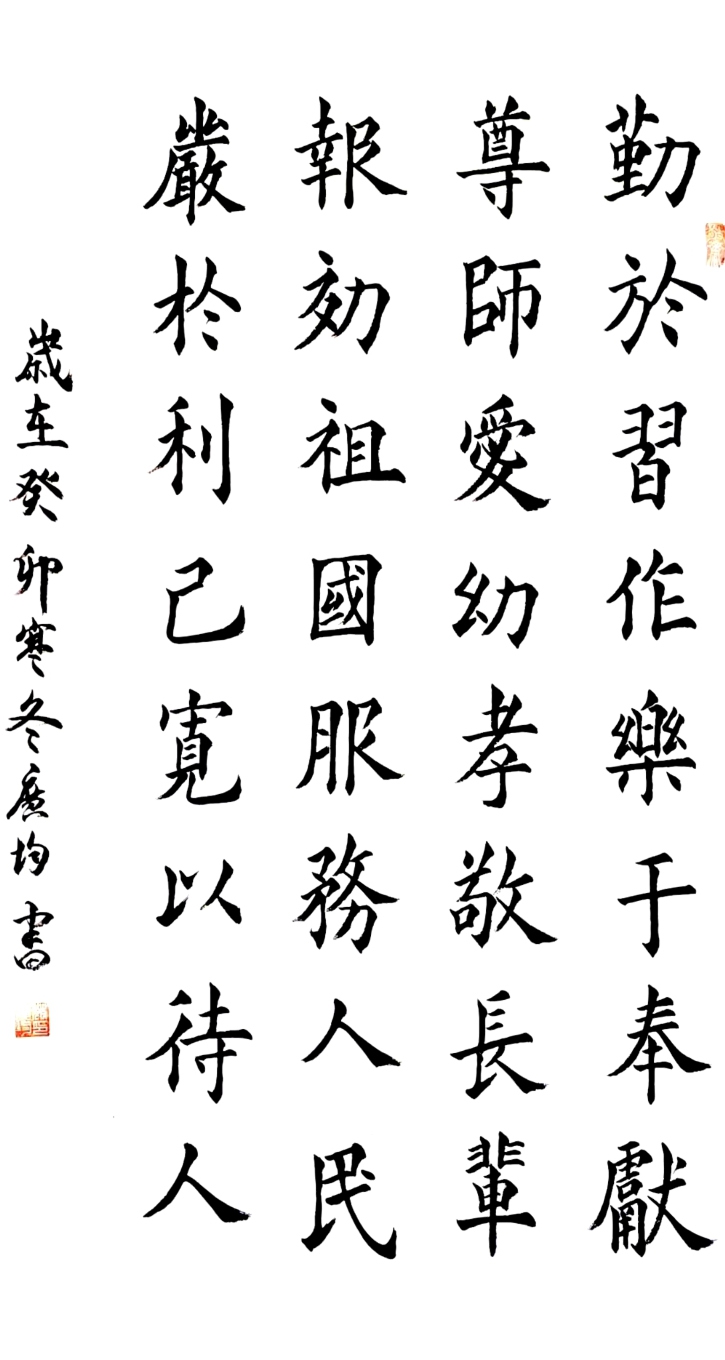 勤於習作樂于奉獻
尊師愛幼孝敬長輩
報効祖國服務人民
嚴於利己寬以待人
歲在癸卯寒冬廣均書